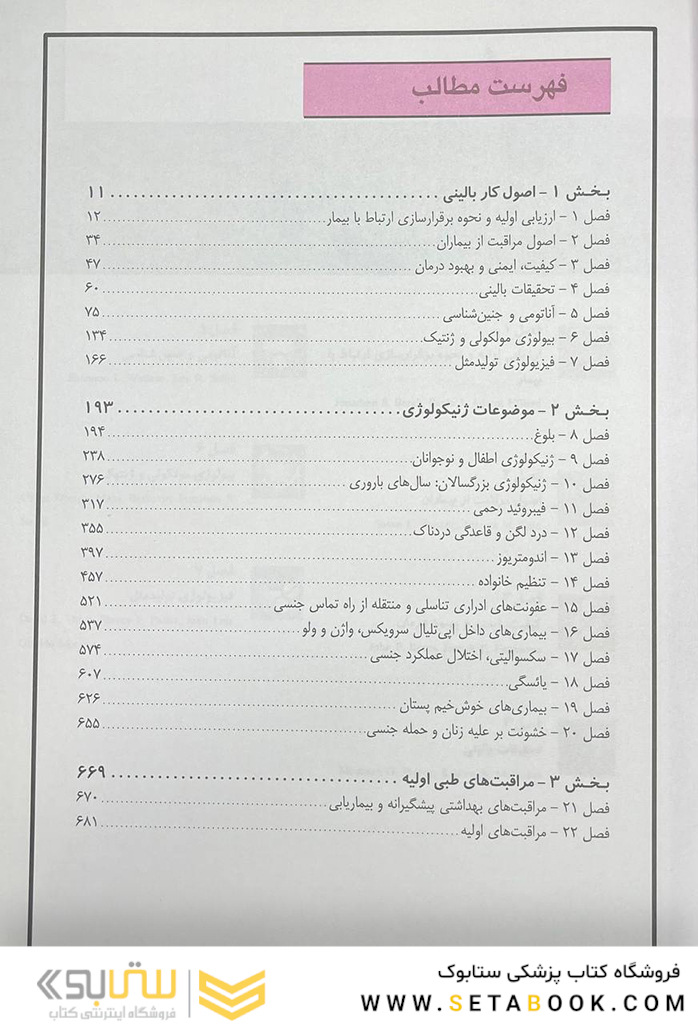 فهرست مطالب
بخش ۱ - اصول کار بالینی ........ ۱۱
فصل ۱ - ارزیابی اولیه و نحوه برقرارسازی ارتباط با بیمار ........ ۱۲
فصل ۲ - اصول مراقبت از بیماران ........ ۳۴
فصل ۳ - کیفیت، ایمنی و بهبود درمان ........ ۴۷
فصل ۴ - تحقیقات بالینی ........ ۶۰
فصل ۵ - آناتومی و جنین‌شناسی ........ ۷۵
فصل ۶ - بیولوژی مولکولی و ژنتیک ........ ۱۳۴
فصل ۷ - فیزیولوژی تولیدمثل ........ ۱۶۶
بخش ۲ - موضوعات ژنیکولوژی ........ ۱۹۳
فصل ۸ - بلوغ ........ ۱۹۴
فصل ۹ - ژنیکولوژی اطفال و نوجوانان ........ ۲۳۸
فصل ۱۰ - ژنیکولوژی بزرگسالان: سال‌های باروری ........ ۲۷۶
فصل ۱۱ - فیبروئید رحمی ........ ۳۱۷
فصل ۱۲ - درد لگن و قاعدگی دردناک ........ ۳۵۵
فصل ۱۳ - اندومتریوز ........ ۳۹۷
فصل ۱۴ - تنظیم خانواده ........ ۴۵۷
فصل ۱۵ - عفونت‌های ادراری تناسلی و منتقله از راه تماس جنسی ........ ۵۲۱
فصل ۱۶ - بیماری‌های داخل اپی‌تلیال سرویکس، واژن و ولو ........ ۵۳۷
فصل ۱۷ - سکسوالیتی، اختلال عملکرد جنسی ........ ۵۷۴
فصل ۱۸ - یائسگی ........ ۶۰۷
فصل ۱۹ - بیماری‌های خوش‌خیم پستان ........ ۶۲۶
فصل ۲۰ - خشونت بر علیه زنان و حمله جنسی ........ ۶۵۵
بخش ۳ - مراقبت‌های طبی اولیه ........ ۶۶۹
فصل ۲۱ - مراقبت‌های بهداشتی پیشگیرانه و بیماریابی ........ ۶۷۰
فصل ۲۲ - مراقبت‌های اولیه ........ ۶۸۱
فروشگاه کتاب پزشکی ستابوک
WWW.SETABOOK.COM
ستابوک
فروشگاه اینترنتی کتاب